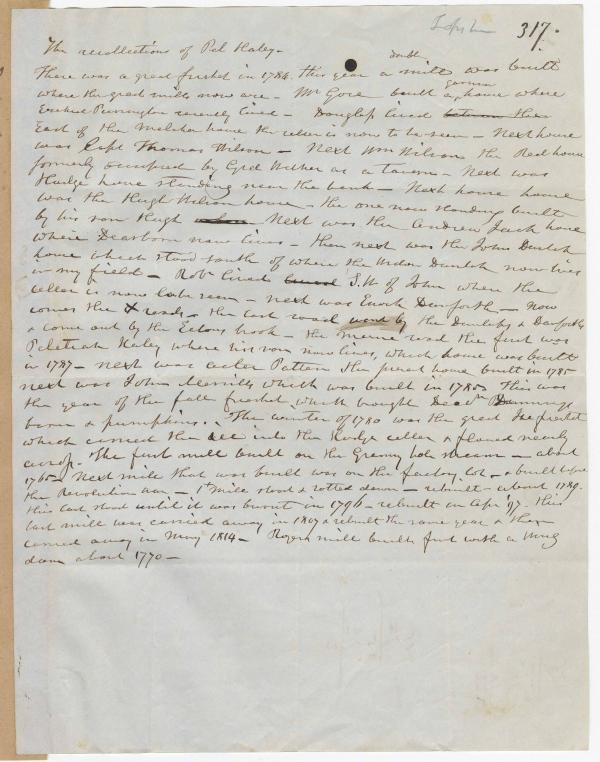 317.
The recollections of Pel Haley -
There was a great freshet in 1784. This year a double mill was built
where the grad mills now are - Mr Gore built a house where
Ezekiel Purrington recently lived - Douglass lived then
East of the Melcher house the cellar is now to be seen - Next house
was Capt Thomas Wilson - Next Wm Wilson the Red house
formerly occupied by as a tavern - Next was
house standing near the bank - Next house
was the Hugh Wilson house - the one now standing built
by his son Hugh Next was the Andrew Jack house
where Dearborn now lives - then next was the John Dunlap
house which stood south of where the Widow Dunlap now lives
in my field - Robt lived S.W of John where the
cellar is now to be seen - next was Enoch Danforth - Now
comes the X roads - the east road went by the Dunlaps & Danforths
& come out by the brook - the road the first was
Pelatiah Haley where his son now lives, which house was built
in 1787 - next was Patten the house built in 1785
next was John Merrills which was built in 1785 This was
the year of the fall freshet which brought
barn & pumpkins. The winter of 1780 was the great Ice freshet
which carried the ice into the cellar & flowed nearly
across. The first mill built on the Granny hole stream - about
1760 - Next mill that was built was on the factory lot - & built before
the Revolution war - 1st mill stood & rotted down - rebuilt - about 1789.
this last stood until it was burnt in 1796 - rebuilt in Apr '97. This
last mill was carried away in 1807 & rebuilt the same year & then
carried away in May 1814 - Rogers mill built first with a wing
dam about 1770 -